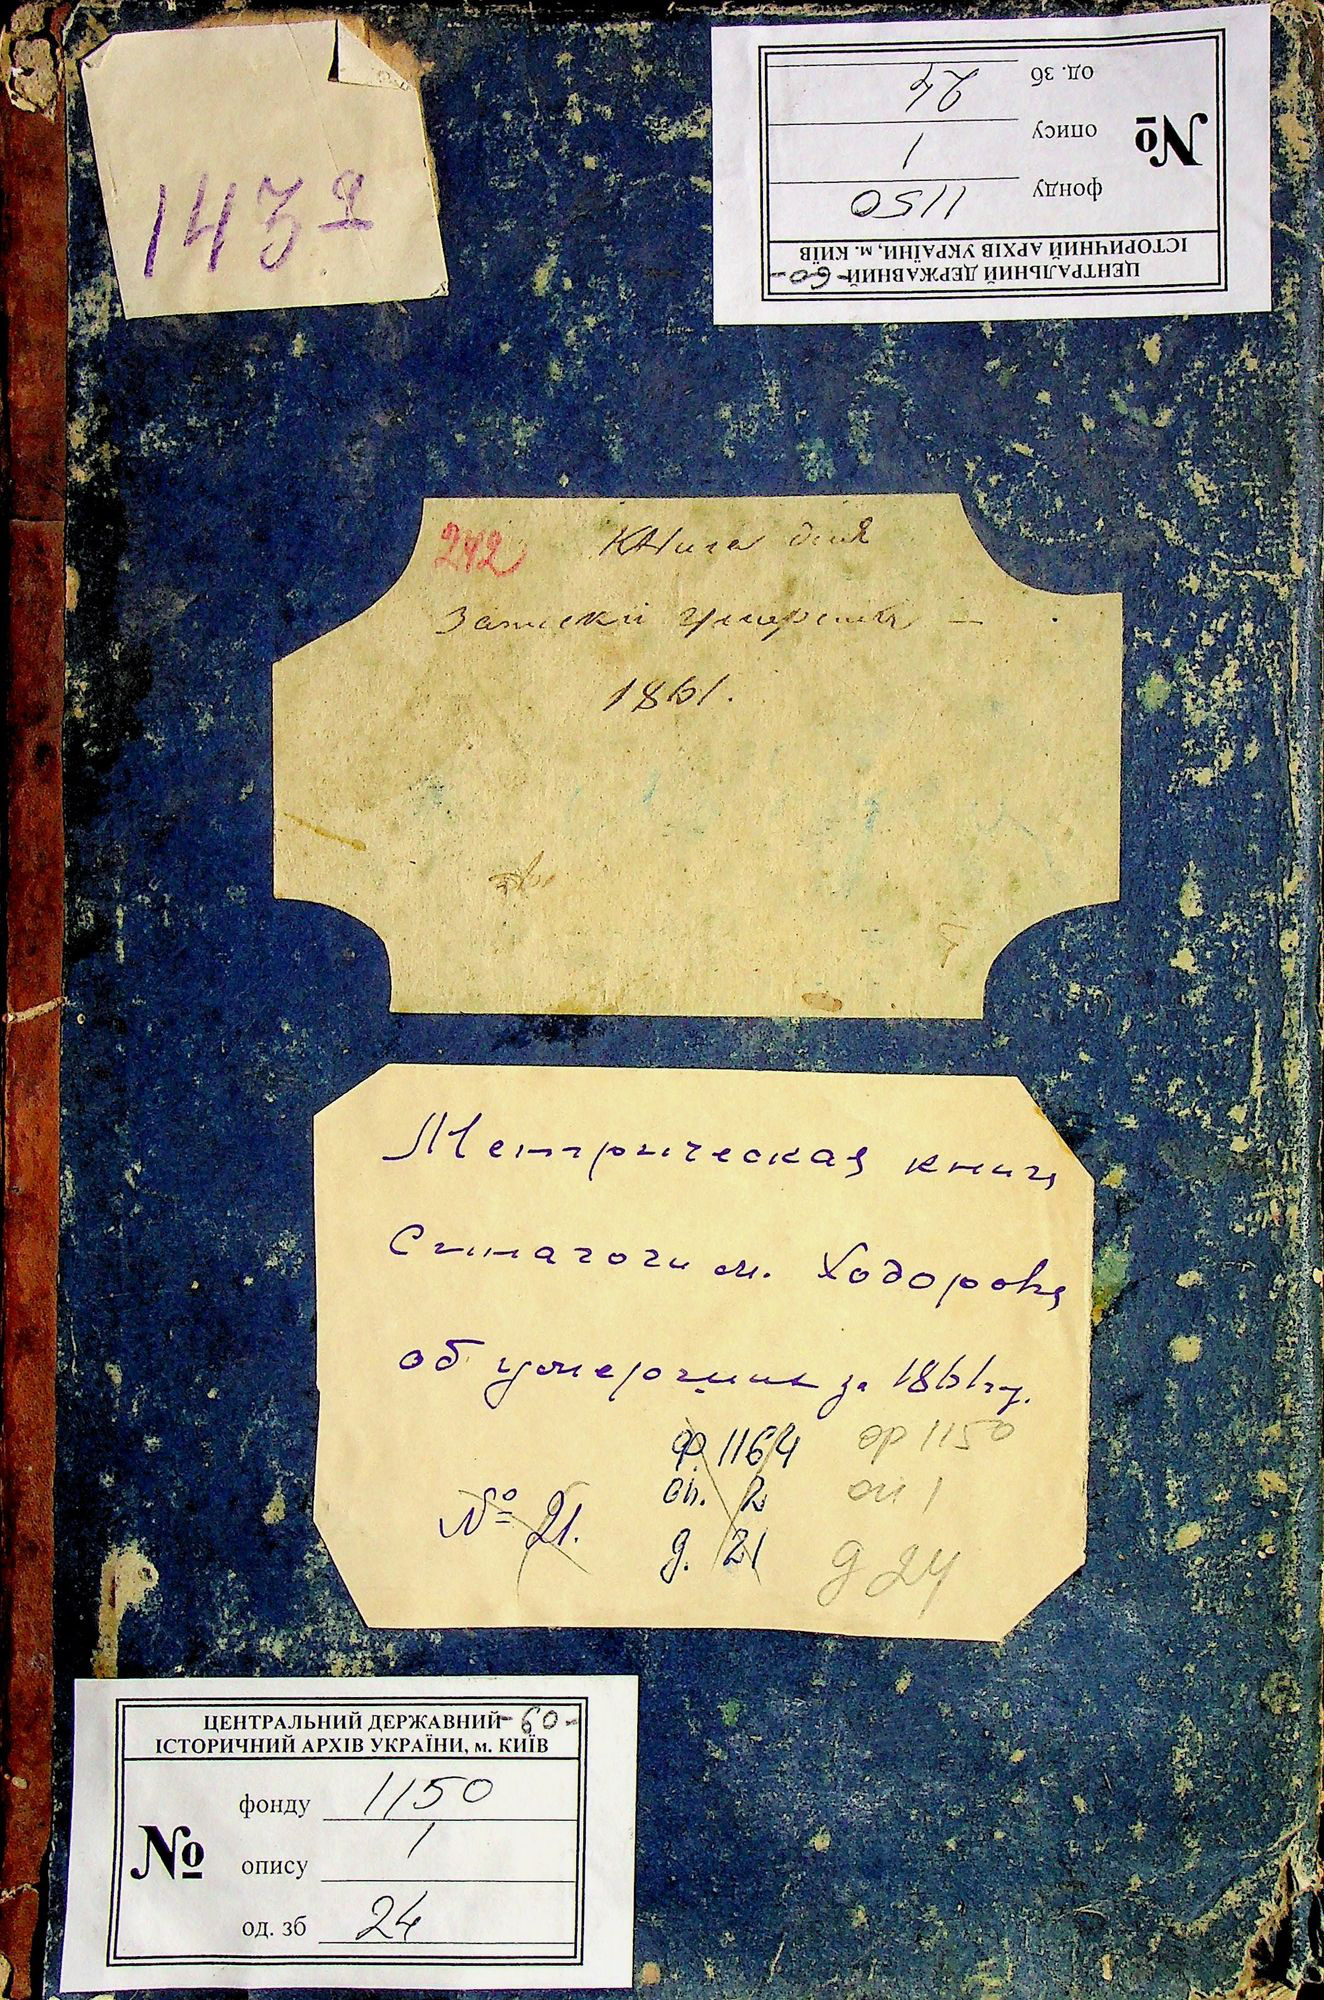 1432
ЦЕНТРАЛЬНИЙ ДЕРЖАВНИЙ -60-
ІСТОРИЧНИЙ АРХІВ УКРАЇНИ, м. КИЇВ
№
фонду 1150
опису 1
од. зб 24
242 Книга для
Записки умерших —
1861.
Метрическая книга
Синагоги м. Ходорова
об умерших за 1861 г.
ф. 1164 ф 1150
оп. 2 оп 1
№ 21. д. 21 д 24
ЦЕНТРАЛЬНИЙ ДЕРЖАВНИЙ -60-
ІСТОРИЧНИЙ АРХІВ УКРАЇНИ, м. КИЇВ
№
фонду 1150
опису 1
од. зб 24